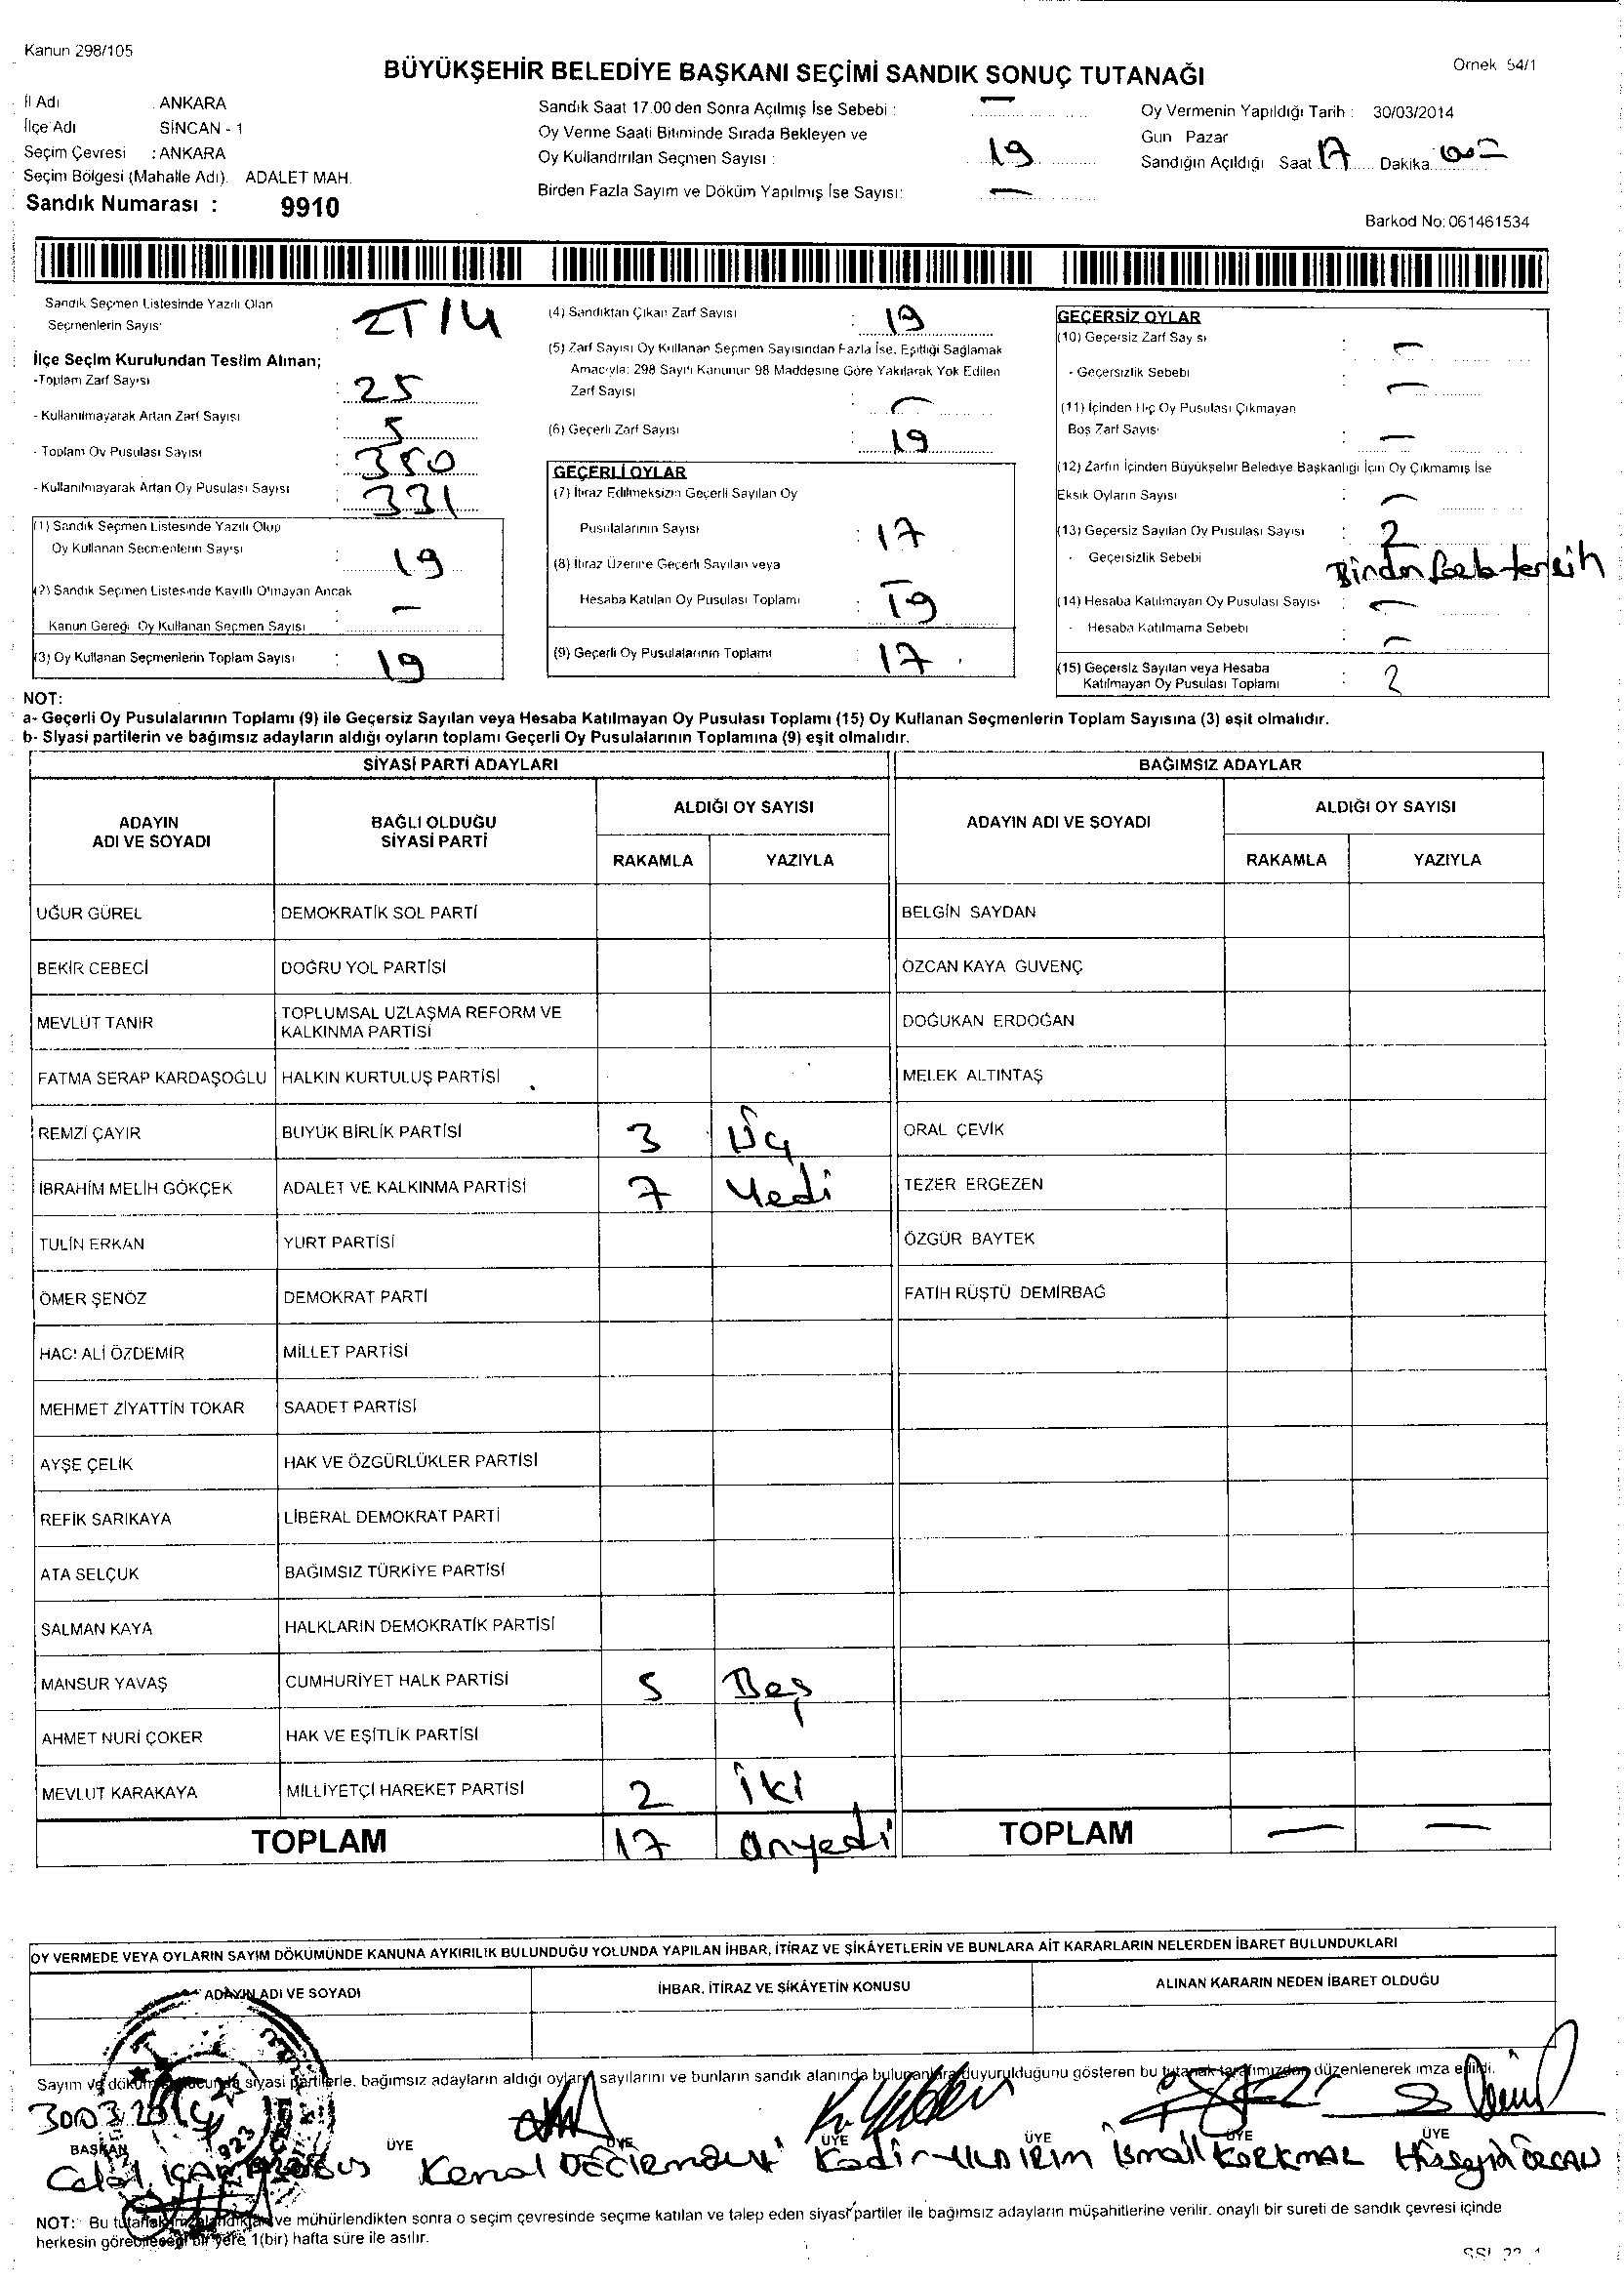 Kanun 298/105
Örnek 54/1
BÜYÜKŞEHİR BELEDİYE BAŞKANI SEÇİMİ SANDIK SONUÇ TUTANAĞI
İl Adı : ANKARA
İlçe Adı SİNCAN - 1
Seçim Çevresi : ANKARA
Seçim Bölgesi (Mahalle Adı). ADALET MAH.
Sandık Numarası : 9910
Sandık Saat 17.00 den Sonra Açılmış İse Sebebi : —
Oy Verme Saati Bitiminde Sırada Bekleyen ve
Oy Kullandırılan Seçmen Sayısı : 19
Birden Fazla Sayım ve Döküm Yapılmış İse Sayısı: —
Oy Vermenin Yapıldığı Tarih : 30/03/2014
Gün Pazar
Sandığın Açıldığı Saat 17 Dakika
Barkod No: 061461534
Sandık Seçmen Listesinde Yazılı Olan
Seçmenlerin Sayısı
İlçe Seçim Kurulundan Teslim Alınan;
-Toplam Zarf Sayısı : 25
- Kullanılmayarak Artan Zarf Sayısı : 5
- Toplam Oy Pusulası Sayısı : 350
- Kullanılmayarak Artan Oy Pusulası Sayısı : 331
(1) Sandık Seçmen Listesinde Yazılı Olup
Oy Kullanan Seçmenlerin Sayısı : 19
(2) Sandık Seçmen Listesinde Kayıtlı Olmayan Ancak
Kanun Gereği Oy Kullanan Seçmen Sayısı : —
(3) Oy Kullanan Seçmenlerin Toplam Sayısı : 19
(4) Sandıktan Çıkan Zarf Sayısı : 19
(5) Zarf Sayısı Oy Kullanan Seçmen Sayısından Fazla İse, Eşitliği Sağlamak
Amacıyla; 298 Sayılı Kanunun 98 Maddesine Göre Yakılarak Yok Edilen
Zarf Sayısı : —
(6) Geçerli Zarf Sayısı : 19
GEÇERLİ OYLAR
(7) İtiraz Edilmeksizin Geçerli Sayılan Oy
Pusulalarının Sayısı : 17
(8) İtiraz Üzerine Geçerli Sayılan veya
Hesaba Katılan Oy Pusulası Toplamı : 19
(9) Geçerli Oy Pusulalarının Toplamı : 17
GEÇERSİZ OYLAR
(10) Geçersiz Zarf Sayısı : —
- Geçersizlik Sebebi : —
(11) İçinden Hiç Oy Pusulası Çıkmayan
Boş Zarf Sayısı : —
(12) Zarfın İçinden Büyükşehir Belediye Başkanlığı İçin Oy Çıkmamış İse
Eksik Oyların Sayısı : —
(13) Geçersiz Sayılan Oy Pusulası Sayısı : 2
- Geçersizlik Sebebi Birden fazla tercih
(14) Hesaba Katılmayan Oy Pusulası Sayısı : —
- Hesaba Katılmama Sebebi : —
(15) Geçersiz Sayılan veya Hesaba
Katılmayan Oy Pusulası Toplamı : 2
NOT:
a- Geçerli Oy Pusulalarının Toplamı (9) ile Geçersiz Sayılan veya Hesaba Katılmayan Oy Pusulası Toplamı (15) Oy Kullanan Seçmenlerin Toplam Sayısına (3) eşit olmalıdır.
b- Siyasi partilerin ve bağımsız adayların aldığı oyların toplamı Geçerli Oy Pusulalarının Toplamına (9) eşit olmalıdır.
SİYASİ PARTİ ADAYLARI BAĞIMSIZ ADAYLAR
ADAYIN ADI VE SOYADI BAĞLI OLDUĞU SİYASİ PARTİ ALDIĞI OY SAYISI ADAYIN ADI VE SOYADI ALDIĞI OY SAYISI
RAKAMLA YAZIYLA RAKAMLA YAZIYLA
UĞUR GÜREL DEMOKRATİK SOL PARTİ BELGİN SAYDAN
BEKİR CEBECİ DOĞRU YOL PARTİSİ ÖZCAN KAYA GÜVENÇ
MEVLÜT TANIR TOPLUMSAL UZLAŞMA REFORM VE KALKINMA PARTİSİ DOĞUKAN ERDOĞAN
FATMA SERAP KARDAŞOĞLU HALKIN KURTULUŞ PARTİSİ MELEK ALTINTAŞ
REMZİ ÇAYIR BÜYÜK BİRLİK PARTİSİ 3 Üç ORAL ÇEVİK
İBRAHİM MELİH GÖKÇEK ADALET VE KALKINMA PARTİSİ 7 Yedi TEZER ERGEZEN
TÜLİN ERKAN YURT PARTİSİ ÖZGÜR BAYTEK
ÖMER ŞENÖZ DEMOKRAT PARTİ FATİH RÜŞTÜ DEMİRBAĞ
HACI ALİ ÖZDEMİR MİLLET PARTİSİ
MEHMET ZİYATTİN TOKAR SAADET PARTİSİ
AYŞE ÇELİK HAK VE ÖZGÜRLÜKLER PARTİSİ
REFİK SARIKAYA LİBERAL DEMOKRAT PARTİ
ATA SELÇUK BAĞIMSIZ TÜRKİYE PARTİSİ
SALMAN KAYA HALKLARIN DEMOKRATİK PARTİSİ
MANSUR YAVAŞ CUMHURİYET HALK PARTİSİ 5 Beş
AHMET NURİ ÇOKER HAK VE EŞİTLİK PARTİSİ
MEVLÜT KARAKAYA MİLLİYETÇİ HAREKET PARTİSİ 2 iki
TOPLAM 17 Onyedi TOPLAM — —
OY VERMEDE VEYA OYLARIN SAYIM DÖKÜMÜNDE KANUNA AYKIRILIK BULUNDUĞU YOLUNDA YAPILAN İHBAR, İTİRAZ VE ŞİKÂYETLERİN VE BUNLARA AİT KARARLARIN NELERDEN İBARET BULUNDUKLARI
ADAYIN ADI VE SOYADI İHBAR, İTİRAZ VE ŞİKÂYETİN KONUSU ALINAN KARARIN NEDEN İBARET OLDUĞU
Sayım ve döküm sonucunda siyasi partilerle, bağımsız adayların aldığı oyların sayılarını ve bunların sandık alanında bulunanlara duyurulduğunu gösteren bu tutanak tarafımızdan düzenlenerek imza edildi.
30032014
BAŞKAN ÜYE ÜYE ÜYE ÜYE ÜYE ÜYE
Celal Kemal Kadir YILDIRIM İsmail KORKMAZ Hüseyin ÖZCAN
NOT: Bu tutanak imzalandıktan ve mühürlendikten sonra o seçim çevresinde seçime katılan ve talep eden siyasi partiler ile bağımsız adayların müşahitlerine verilir. onaylı bir sureti de sandık çevresi içinde
herkesin görebileceği bir yere 1(bir) hafta süre ile asılır.